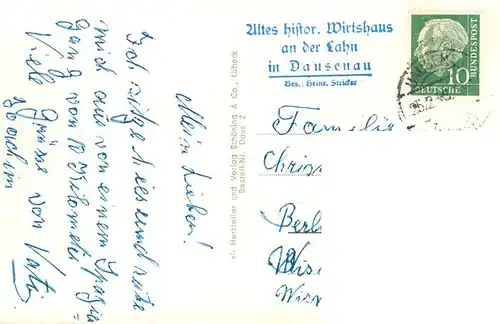 Meine Lieben!
Ich sitze hier und ruhe
mich aus von einem Spazier=
gang von 10 Kilometer
Viele Grüsse von Vati
Joachim
st. Hersteller und Verlag Schöning & Co., Lübeck
Bestell-Nr. Daus 2
Altes histor. Wirtshaus
an der Lahn
in Dausenau
Bes.: Heinr. Stricker
10
DEUTSCHE
BUNDESPOST
Familie
Chri
Berl
Wis